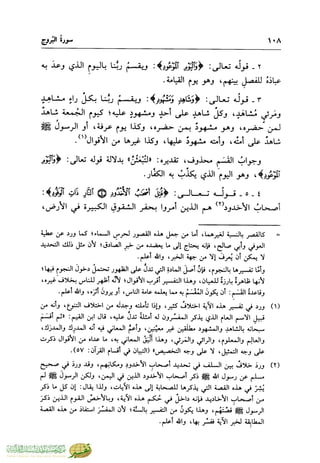 ١٠٨
سورة البروج
٢ - قوله تعالى: ﴿وَالْيَوْمِ الْمَوْعُودِ﴾: ويقسم ربُّنا باليوم الذي وعدَ به
عبادَه للفصلِ بينهم، وهو يوم القيامة.
٣ - قوله تعالى: ﴿وَشَاهِدٍ وَمَشْهُودٍ﴾: ويقسم ربُّنا بكلِّ راءٍ مشاهِدٍ
ومَرئيٍّ مُشاهَد، وكلِّ شاهدٍ على أحدٍ ومشهودٍ عليه؛ كيوم الجمعة شاهدٌ
لمن حضره، وهو مشهودٌ بمن حضره، وكذا يوم عرفة، أو الرسول ﷺ
شاهدٌ على أمته، وأمته مشهودٌ عليها، وكذا غيرها من الأقوال(١).
وجوابُ القَسَمِ محذوف، تقديره: لتُبْعَثُنَّ؛ بدلالة قوله تعالى: ﴿وَالْيَوْمِ
الْمَوْعُودِ﴾، وهو اليوم الذي يكذِّب به الكفار.
٤ - ٥ - قوله تعالى: ﴿قُتِلَ أَصْحَابُ الْأُخْدُودِ ۝ النَّارِ ذَاتِ الْوَقُودِ﴾:
أصحابُ الأخدود(٢) هم الذين أمروا بحفر الشقوقِ الكبيرة في الأرض،
= كالقصر بالنسبة لغيرهما، أما من جعل هذه القصور لحرس السماء؛ كما ورد عن عطية
العوفي وأبي صالح، فإنه يحتاج إلى ما يعضده من خبر الصادق؛ لأن مثل ذلك التحديد
لا يمكن أن يُعرف إلا من جهة الخبر، والله أعلم.
وأمَّا تفسيرها بالنجوم، فإنَّ أصلَ المادة التي تدلُّ على الظهور تحتملُ دخولَ النجوم فيها؛
لأنها ظاهرةٌ بارزةٌ للعيان، وهذا التفسير أقرب الأقوال؛ لأنه أظهر للناس بخلاف غيره،
وقاعدةُ القَسَم: أن يكونَ المُقسَمُ به مما يعلمه عامة الناس، أو يرونَ أثرَه، والله أعلم.
(١) ورد في تفسير هذه الآية اختلافٌ كثير، وإذا تأملته وجدتَه من اختلاف التنوع، وأنه من
قبيل الاسم العام الذي يذكر المفسِّرون له أمثلةً تدلُّ عليه، قال ابن القيم: «ثم أقسم
سبحانه بالشاهد والمشهود مطلقين غير معيَّنين، وأعمُّ المعاني فيه أنه المدرِك والمدرَك،
والعالم والمعلوم، والرائي والمرئي، وهذا أليَقُ المعاني به، ما عداه من الأقوال ذُكِرت
على وجه التمثيل، لا على وجه التخصيص» (التبيان في أقسام القرآن: ٥٧).
(٢) ورد خلافٌ بين السلف في تحديد أصحاب الأخدود ومكانِهم، وقد وردَ في صحيح
مسلم عن رسول الله ﷺ ذكر أصحاب الأخدود الذين في اليمن، ولكن الرسول ﷺ لم
يُشِرْ في هذه القصة التي يذكرها للصحابة إلى هذه الآيات، ولذا يقال: إن كل ما ذكر
من أصحابِ الأخاديدِ فإنه داخلٌ في حُكمِ هذه الآية، وبالأخصِّ القوم الذين ذكرَ
الرسول ﷺ قصَّتَهم، وهذا يكونُ من التفسير بالسنَّة؛ لأن المفسِّرَ استفادَ من هذه القصة
المطابقة لخبر الآية ففسَّر بها، والله أعلم.